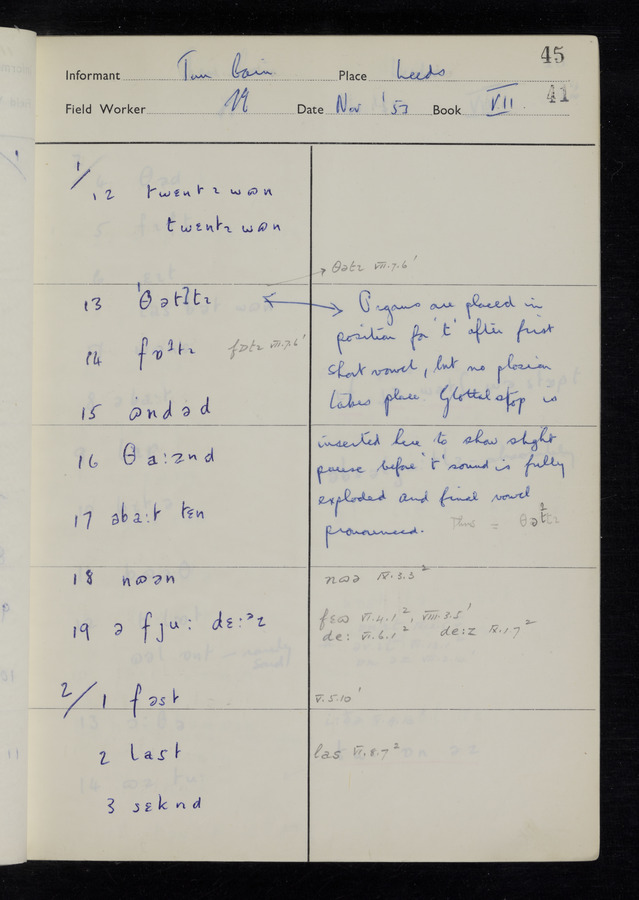 45
Informant Place Leeds
Field Worker Date Nov '53 Book VII 41
1/12 twentɪ wɷn
twɛntɪ wɷn
θətɪ VII.7.6¹
13 ˈθətʔtɪ
14 fɒʔtɪ fɒtɪ VII.7.6¹
15 ɷndəd
16 θa:znd
17 əba:t tɛn
18 nɷən
19 ə fju: dɛ:ᵊz
Organs are placed in
position for 't' after first
short vowel, but no plosion
takes place. Glottal stop is
inserted here to show slight
pause before 't' sound is fully
exploded and final vowel
pronounced. Thus = θətʔtɪ
nɷə IX.3.3²
fɛɷ VI.4.1², VIII.3.5¹
de: VI.6.1² de:z IX.1.7²
2/1 fəst
V.5.10¹
2 last
las VI.8.7²
3 sɛknd